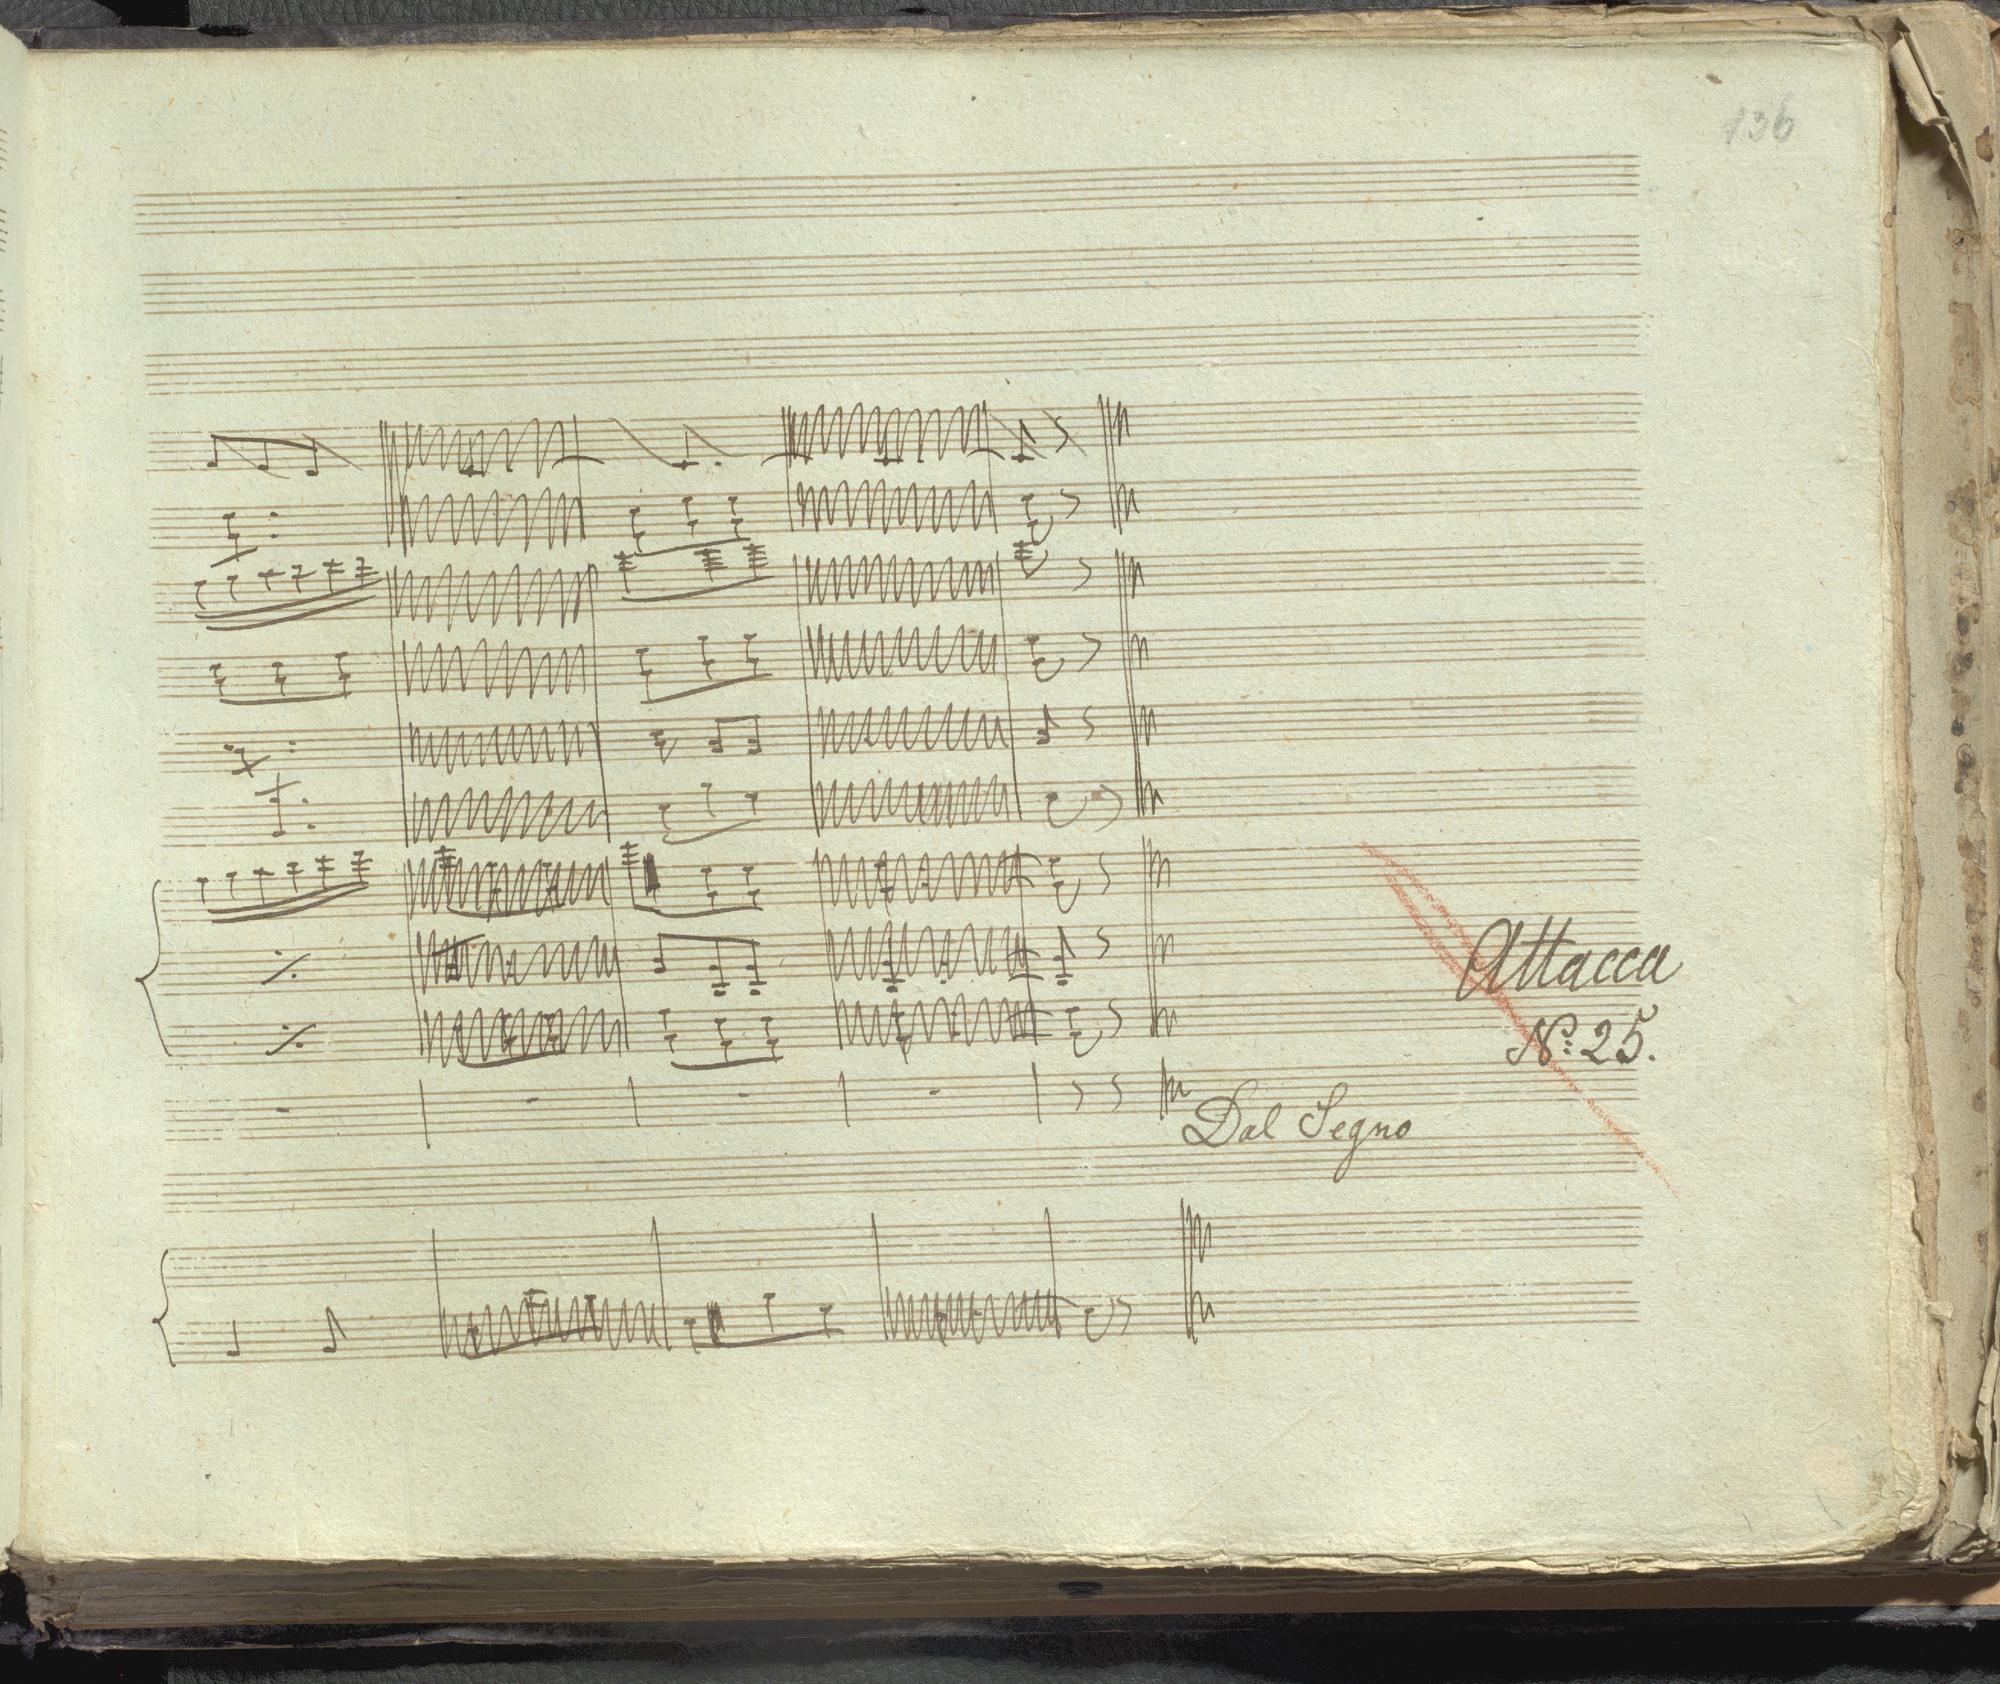 136
Attacca
No. 25.
Dal Segno